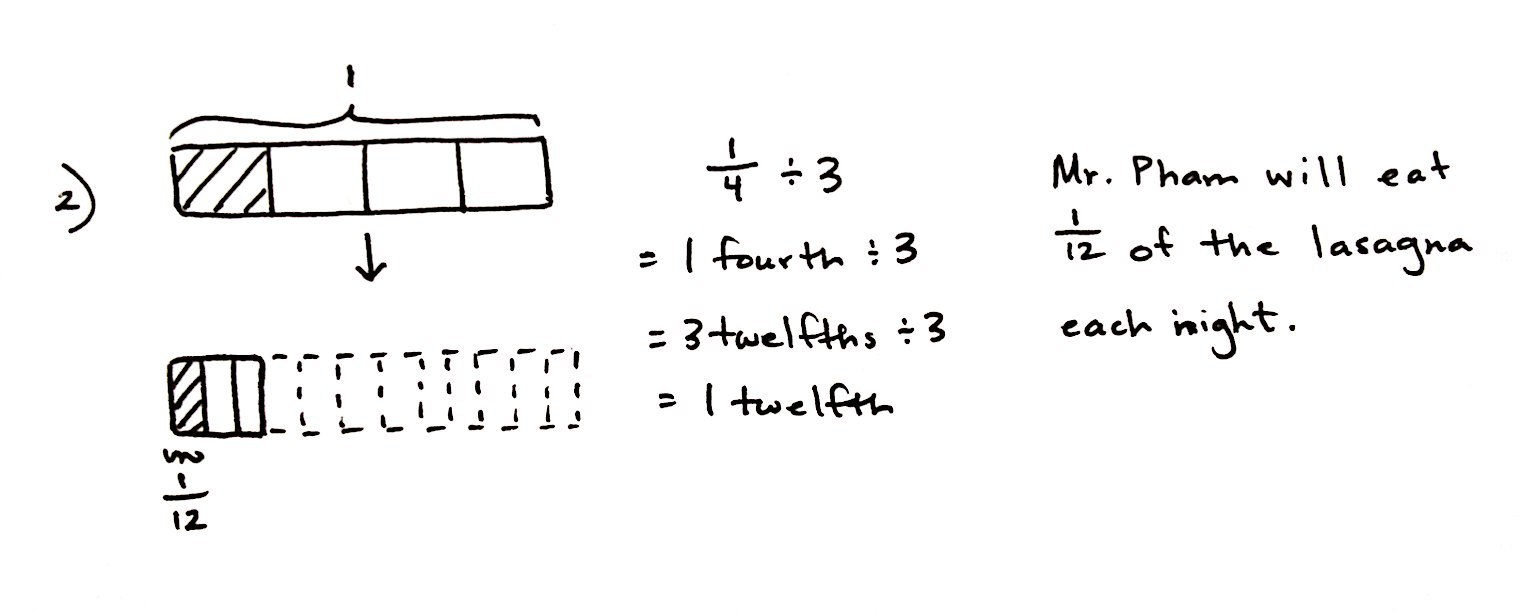 2)
1
1/12
1/4 ÷ 3
= 1 fourth ÷ 3
= 3 twelfths ÷ 3
= 1 twelfth
Mr. Pham will eat
1/12 of the lasagna
each night.